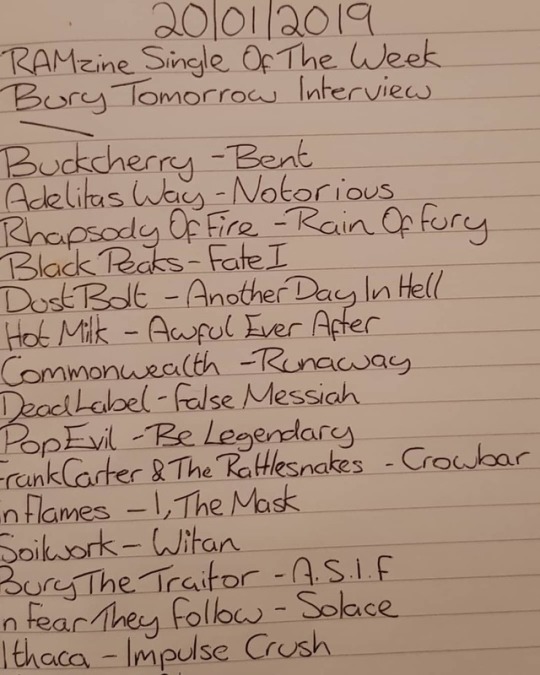 20/01/2019
RAMzine Single Of The Week
Bury Tomorrow Interview
Buckcherry - Bent
Adelitas Way - Notorious
Rhapsody Of Fire - Rain Of Fury
Black Peaks - Fate I
Dust Bolt - Another Day In Hell
Hot Milk - Awful Ever After
Commonwealth - Runaway
Dead Label - False Messiah
Pop Evil - Be Legendary
Frank Carter & The Rattlesnakes - Crowbar
In Flames - I, The Mask
Soilwork - Witan
Bury The Traitor - A.S.I.F
In Fear They Follow - Solace
Ithaca - Impulse Crush